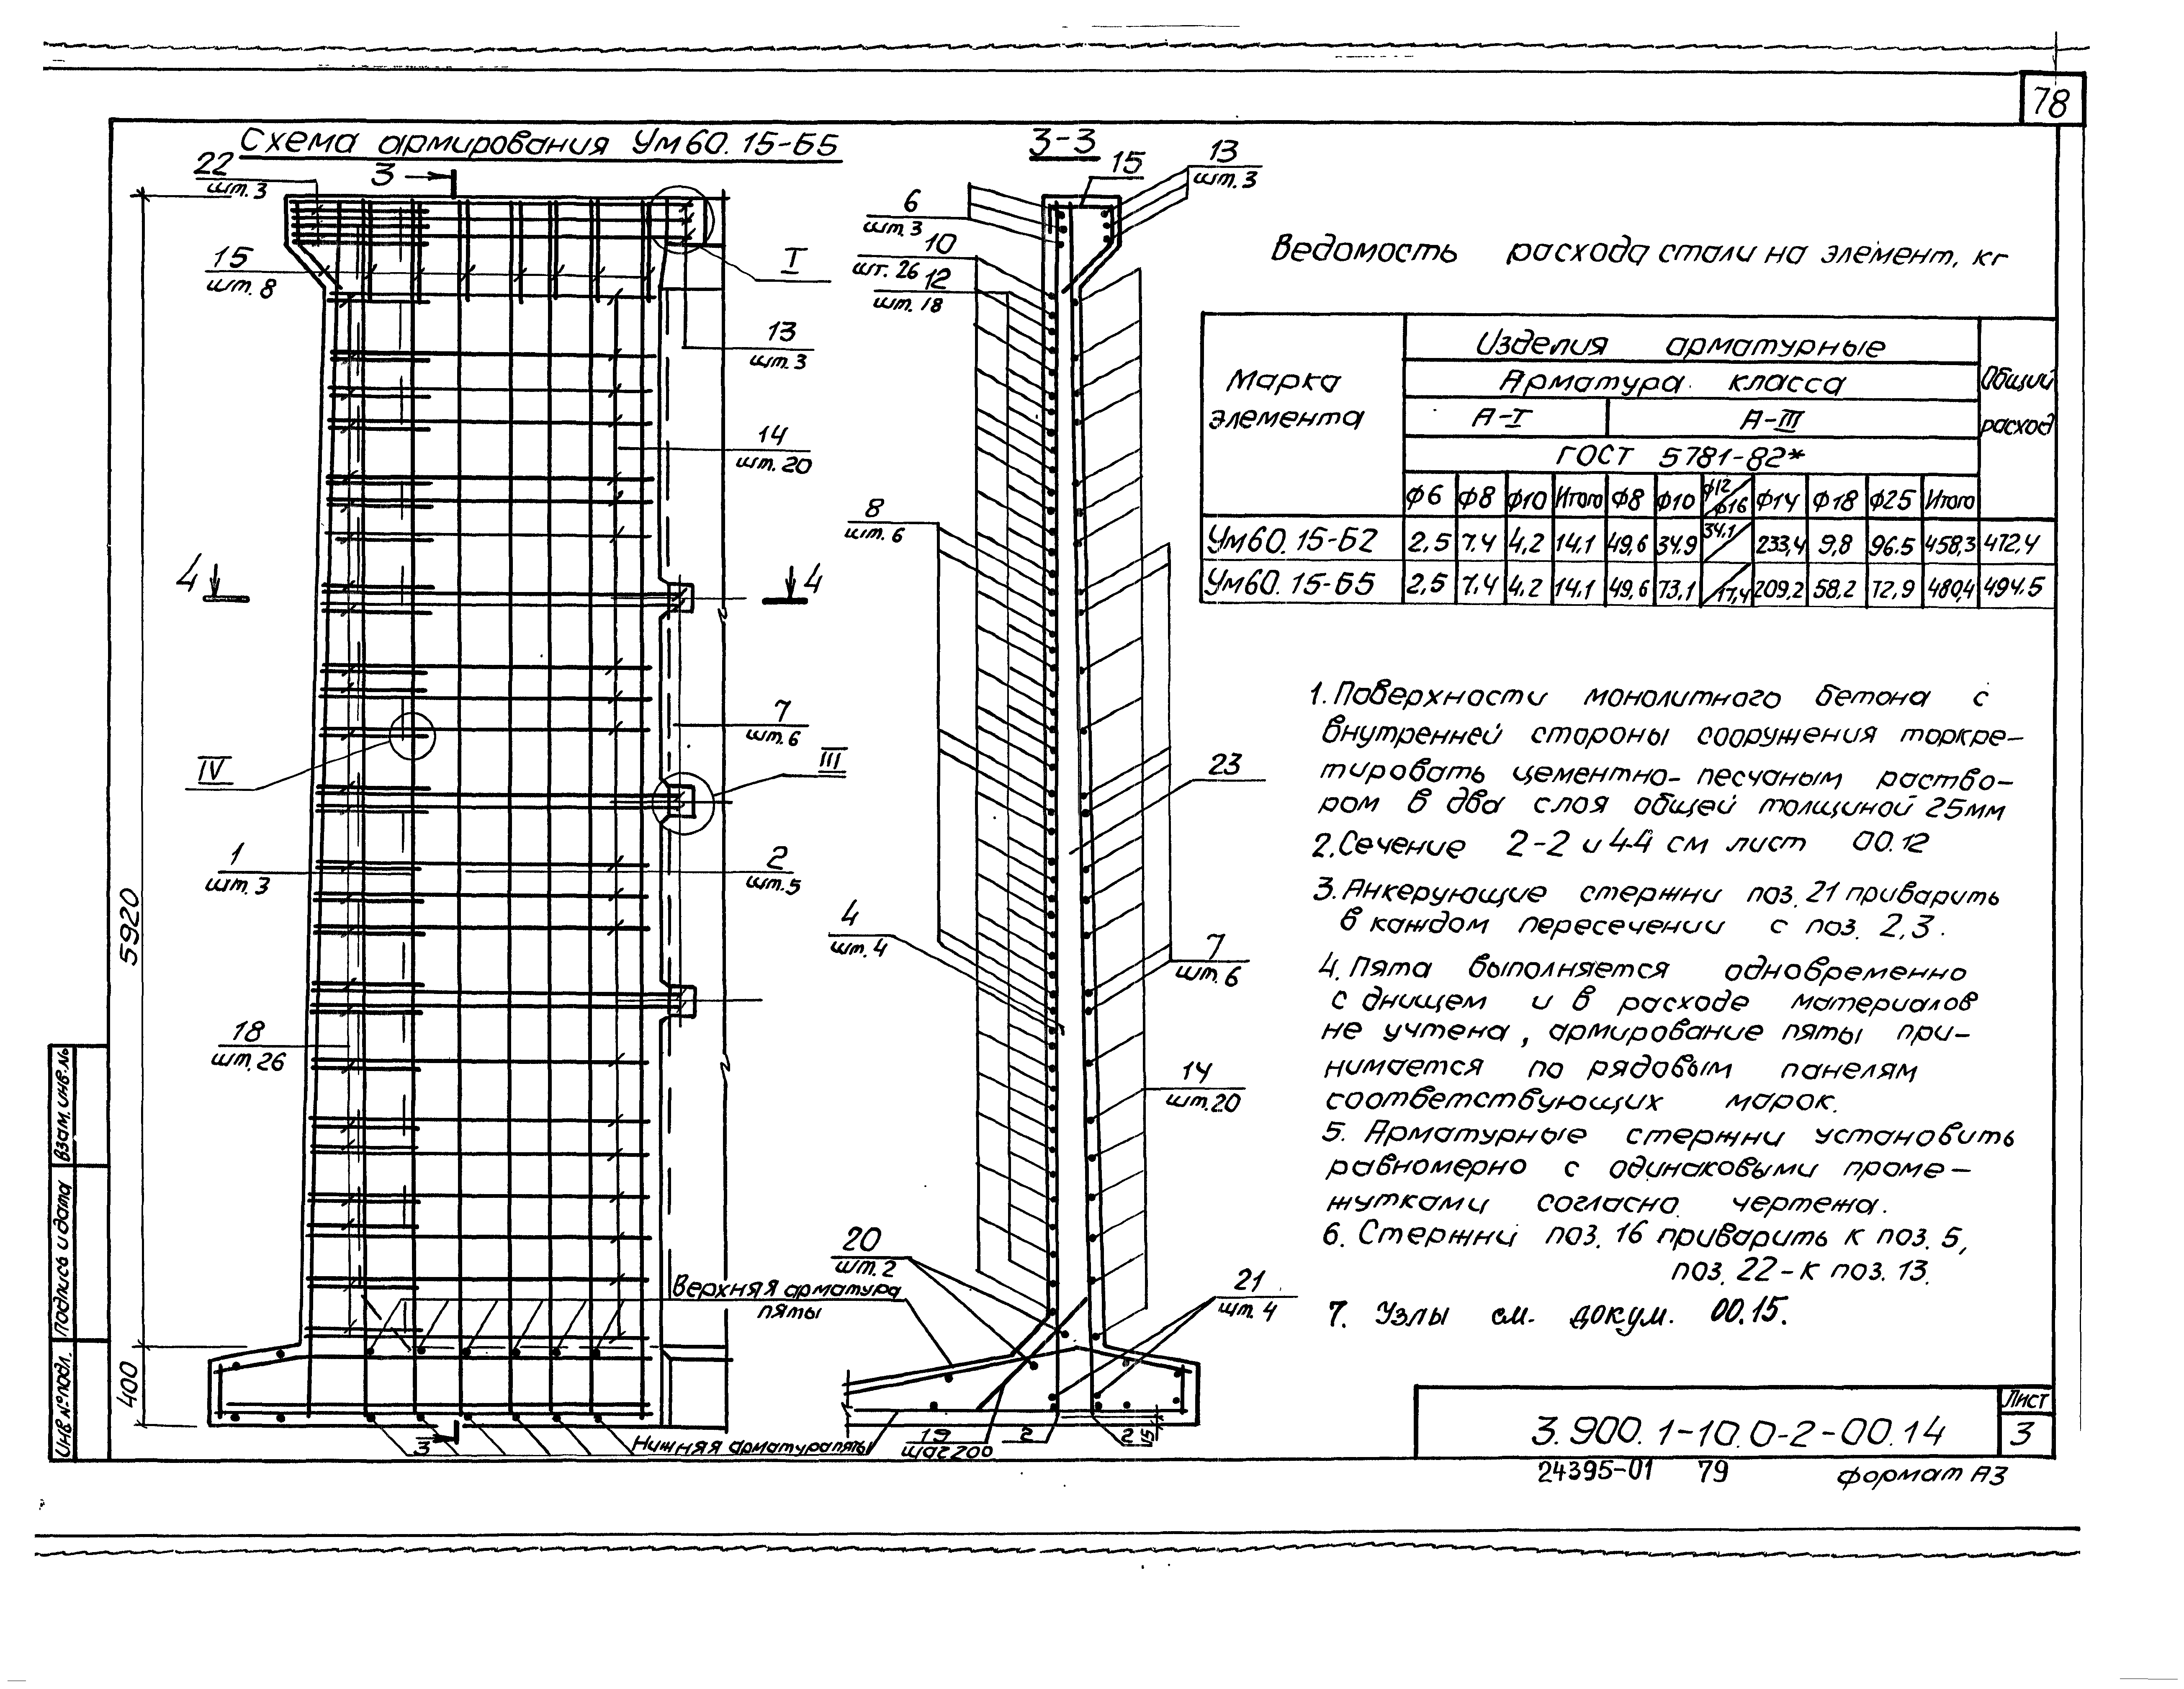 78
Схема армирования Ум60.15-Б5
3-3
22
шт.3
3
15
шт.8
I
13
шт.3
14
шт.20
4
4
7
шт.6
IV
III
1
шт.3
2
шт.5
18
шт.26
5920
400
3
Верхняя арматура
пяты
Нижняя арматура пяты
15
13
шт.3
6
шт.3
10
шт.26
12
шт.18
8
шт.6
23
4
шт.4
7
шт.6
14
шт.20
20
шт.2
21
шт.4
19
шаг200
2
2
15
Ведомость расхода стали на элемент, кг
Марка элемента
Изделия арматурные
Общий расход
Арматура класса
А-I А-III
ГОСТ 5781-82*
ф6 ф8 ф10 Итого ф8 ф10 ф12/ф16 ф14 ф18 ф25 Итого
Ум60.15-Б2 2,5 7.4 4,2 14.1 49,6 34.9 34.1/ 233,4 9,8 96.5 458,3 472,4
Ум60.15-Б5 2,5 7.4 4.2 14.1 49,6 73,1 /17,4 209,2 58,2 72,9 480,4 494.5
1. Поверхности монолитного бетона с
внутренней стороны сооружения торкре-
тировать цементно-песчаным раство-
ром в два слоя общей толщиной 25мм
2. Сечение 2-2 и 4-4 см лист 00.12
3. Анкерующие стержни поз. 21 приварить
в каждом пересечении с поз. 2,3.
4. Пята выполняется одновременно
с днищем и в расходе материалов
не учтена, армирование пяты при-
нимается по рядовым панелям
соответствующих марок.
5. Арматурные стержни установить
равномерно с одинаковыми проме-
жутками согласно чертежа.
6. Стержни поз. 16 приварить к поз. 5,
поз. 22-к поз. 13.
7. Узлы см. докум. 00.15.
3.900.1-10.0-2-00.14
Лист
3
24395-01 79 формат А3
Инв № подл. Подпись и дата Взам. инв. №